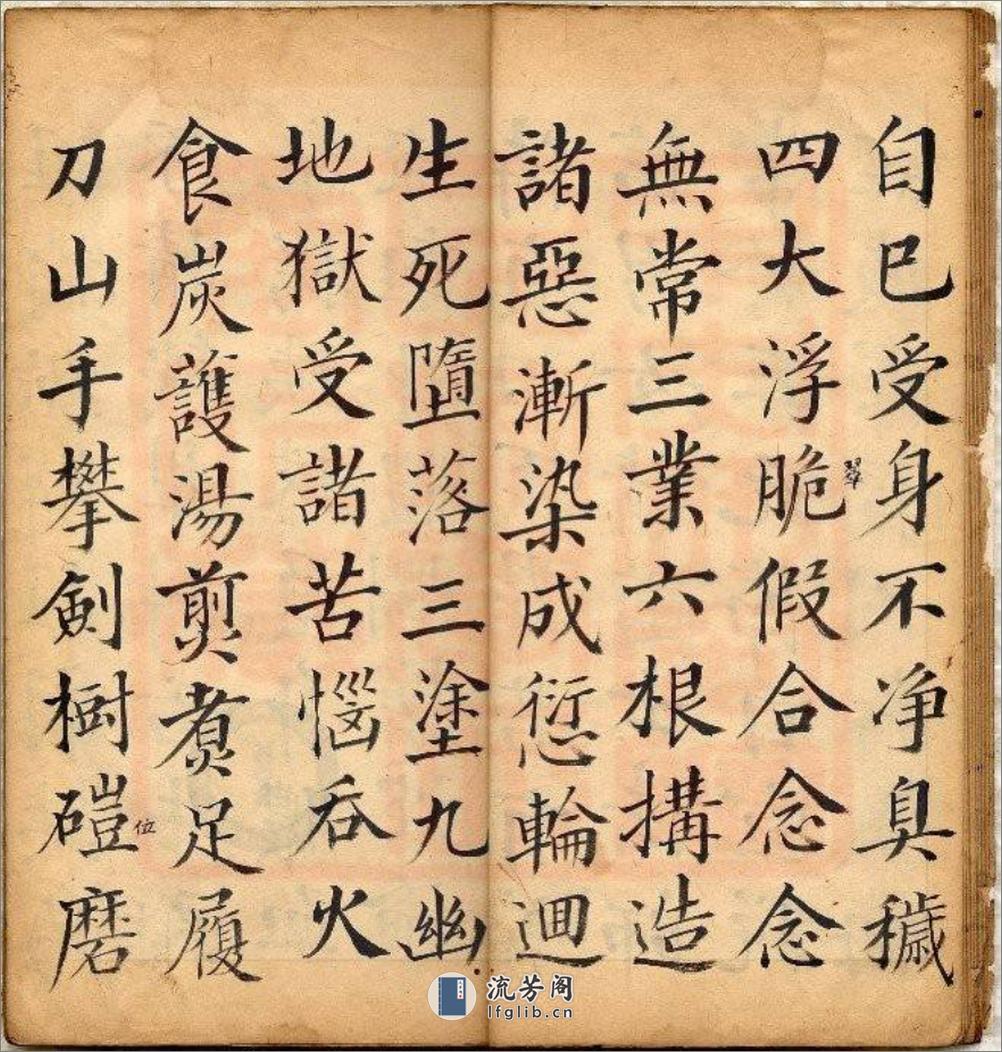 自已受身不净臭穢
四大浮脆假合念念
無常三業六根搆造
諸惡漸染成愆輪迴
生死墮落三塗九幽
地獄受諸苦惱吞火
食炭護湯煎煑足履
刀山手攀劍樹磑磨
翠
位
流芳阁
lfglib.cn